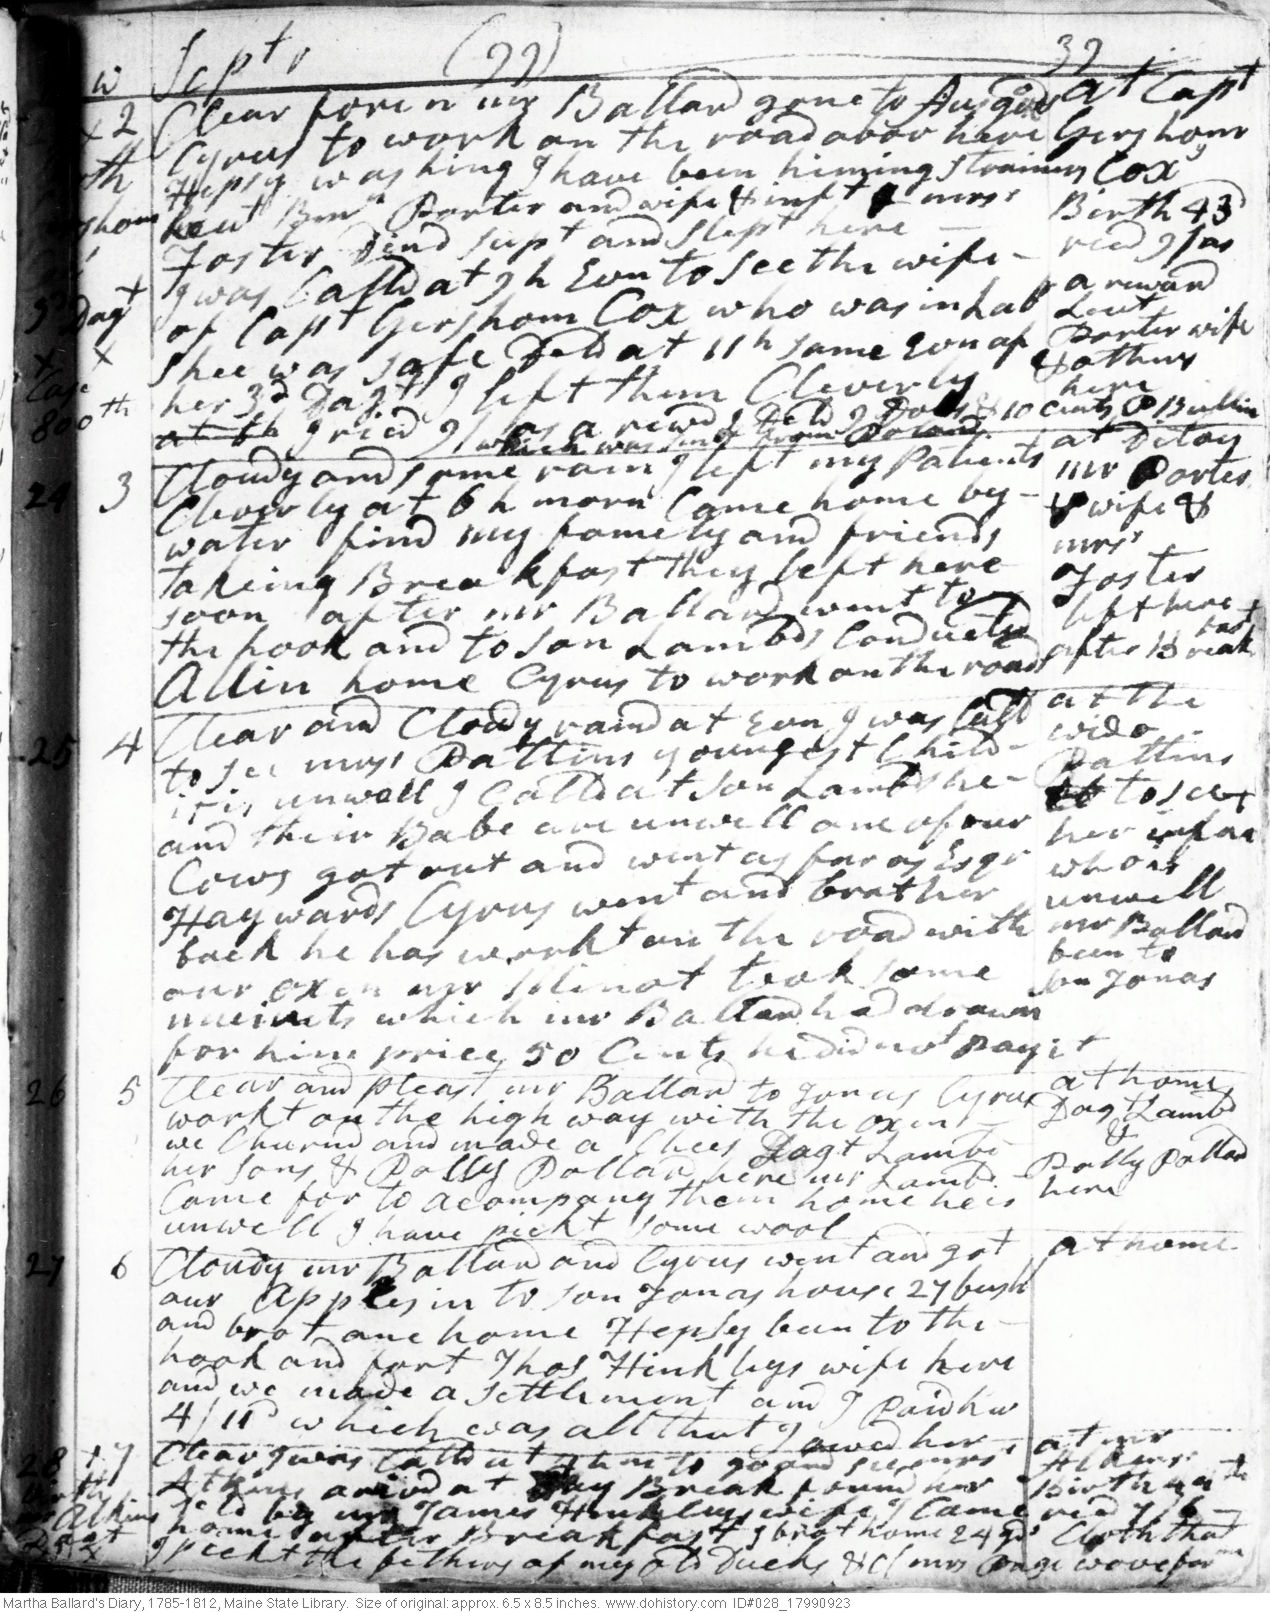 Sept r (77) 32
w
x 2 Clear foren mr Ballard gone to Augus at Capt
Cyrus to work on the road abov here Gershom
th Hepsy washing I have been himing strainers Cox s
Benn Porter and wife & inft mrss Birth 43d
Foster Dind supt and slept here — recd 9/ as
I was Calld at 9 h Evn to See the wife - a reward
3d Dagt of Capt Gershom Cox who was in Lab Leut
x x shee was safe Deld at 11 h same Evn of Porter wife
Case her 3d Dagt I left them Cleverly & others
here
800th at 6 h I recd 9/ as a reward & 10 cents
which was
24 3 Cloudy and some rain I left my Patients at Ditoy
Cleverly at 6 h morn Came home by - mr Porter
water find my famely and friends & wife &
mrss
taking Breakfast they left here Foster
soon after mr Ballard went to left here
the hook and to son Lambds Conducted after Break
fast
Allin home Cyrus to work on the road
25 4 Clear and Cloudy raind at Evn I was Calld at the
to see mrss Pattins youngest Child - wido
Pattins
it is unwell I Calld at son Lambds he - to see
and their Babe are unwell one of our her infan
Cows got out and went as far as Esqr who is
Haywards Cyrus went and brot her unwell
back he has workt on the road with mr Ballard
been to
our oxen mr took some son Jonas
which mr Ballard had drawn
for him price 50 Cents he did not Pay it
26 5 Clear and pleast mr Ballard to Jonas Cyrus at home
workt on the high way with the oxen Dagt Lambd
we Churnd and made a Chees Dagt Lambd &
her sons & Dolly Pollard here mr Lambd Dolly Pollard
Came for to acompany them home he is here
unwell I have pickt some wool
27 6 Cloudy mr Ballard and Cyrus went and got at home
our Apples in to son Jonas house 27 bush
and brot one home Hepsy been to the -
hook and part Thos Hinkleys wife here
and we made a settlment and I Paid her
4/11d which was all that I owed her -
28 x 7 Clear I was Calld at to go and see mrs at mr
Birth Atkins arivd at Day Break found her Atkins
mr Atkins Deld by mr James Hinkleys wife I Came Birth 44th
recd 7/6
home after Breakfast I brot home 24 yds Cloth that
I pickt the fethers of my old Ducks &C mrs Page wove for me
Martha Ballard's Diary, 1785-1812, Maine State Library. Size of original: approx. 6.5 x 8.5 inches. www.dohistory.com ID#028_17990923